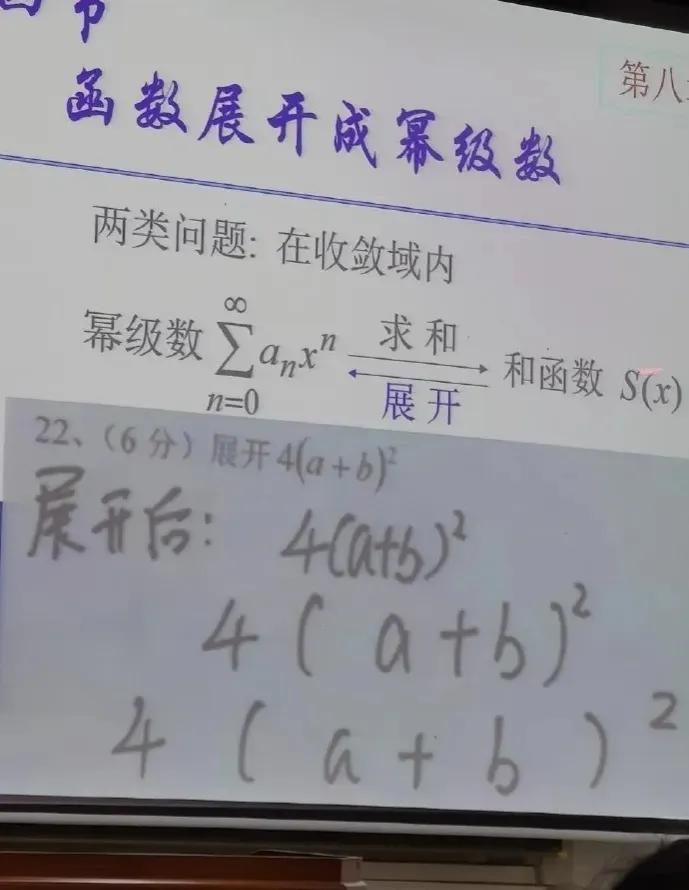 四节
第八
函数展开成幂级数
两类问题: 在收敛域内
幂级数 ∞∑n=0 aₙxⁿ 求和 展开 和函数 S(x)
22、(6分) 展开 4(a+b)²
展开后: 4(a+b)²
4(a+b)²
4(a+b)²